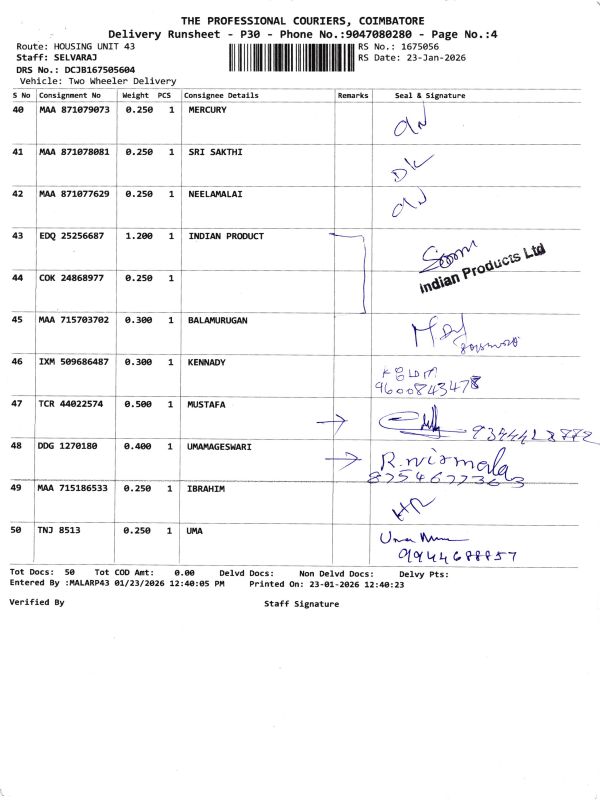 THE PROFESSIONAL COURIERS, COIMBATORE
Delivery Runsheet - P30 - Phone No.:9047080280 - Page No.:4
Route: HOUSING UNIT 43 RS No.: 1675056
Staff: SELVARAJ RS Date: 23-Jan-2026
DRS No.: DCJB167505604
Vehicle: Two Wheeler Delivery
S No Consignment No Weight PCS Consignee Details Remarks Seal & Signature
40 MAA 871079073 0.250 1 MERCURY
41 MAA 871078081 0.250 1 SRI SAKTHI
42 MAA 871077629 0.250 1 NEELAMALAI
43 EDQ 25256687 1.200 1 INDIAN PRODUCT
Indian Products Ltd
44 COK 24868977 0.250 1
45 MAA 715703702 0.300 1 BALAMURUGAN
46 IXM 509686487 0.300 1 KENNADY
9600843478
47 TCR 44022574 0.500 1 MUSTAFA
48 DDG 1270180 0.400 1 UMAMAGESWARI R.nirmala
8754677363
49 MAA 715186533 0.250 1 IBRAHIM
50 TNJ 8513 0.250 1 UMA Uma
9944688857
Tot Docs: 50 Tot COD Amt: 0.00 Delvd Docs: Non Delvd Docs: Delvy Pts:
Entered By :MALARP43 01/23/2026 12:40:05 PM Printed On: 23-01-2026 12:40:23
Verified By Staff Signature